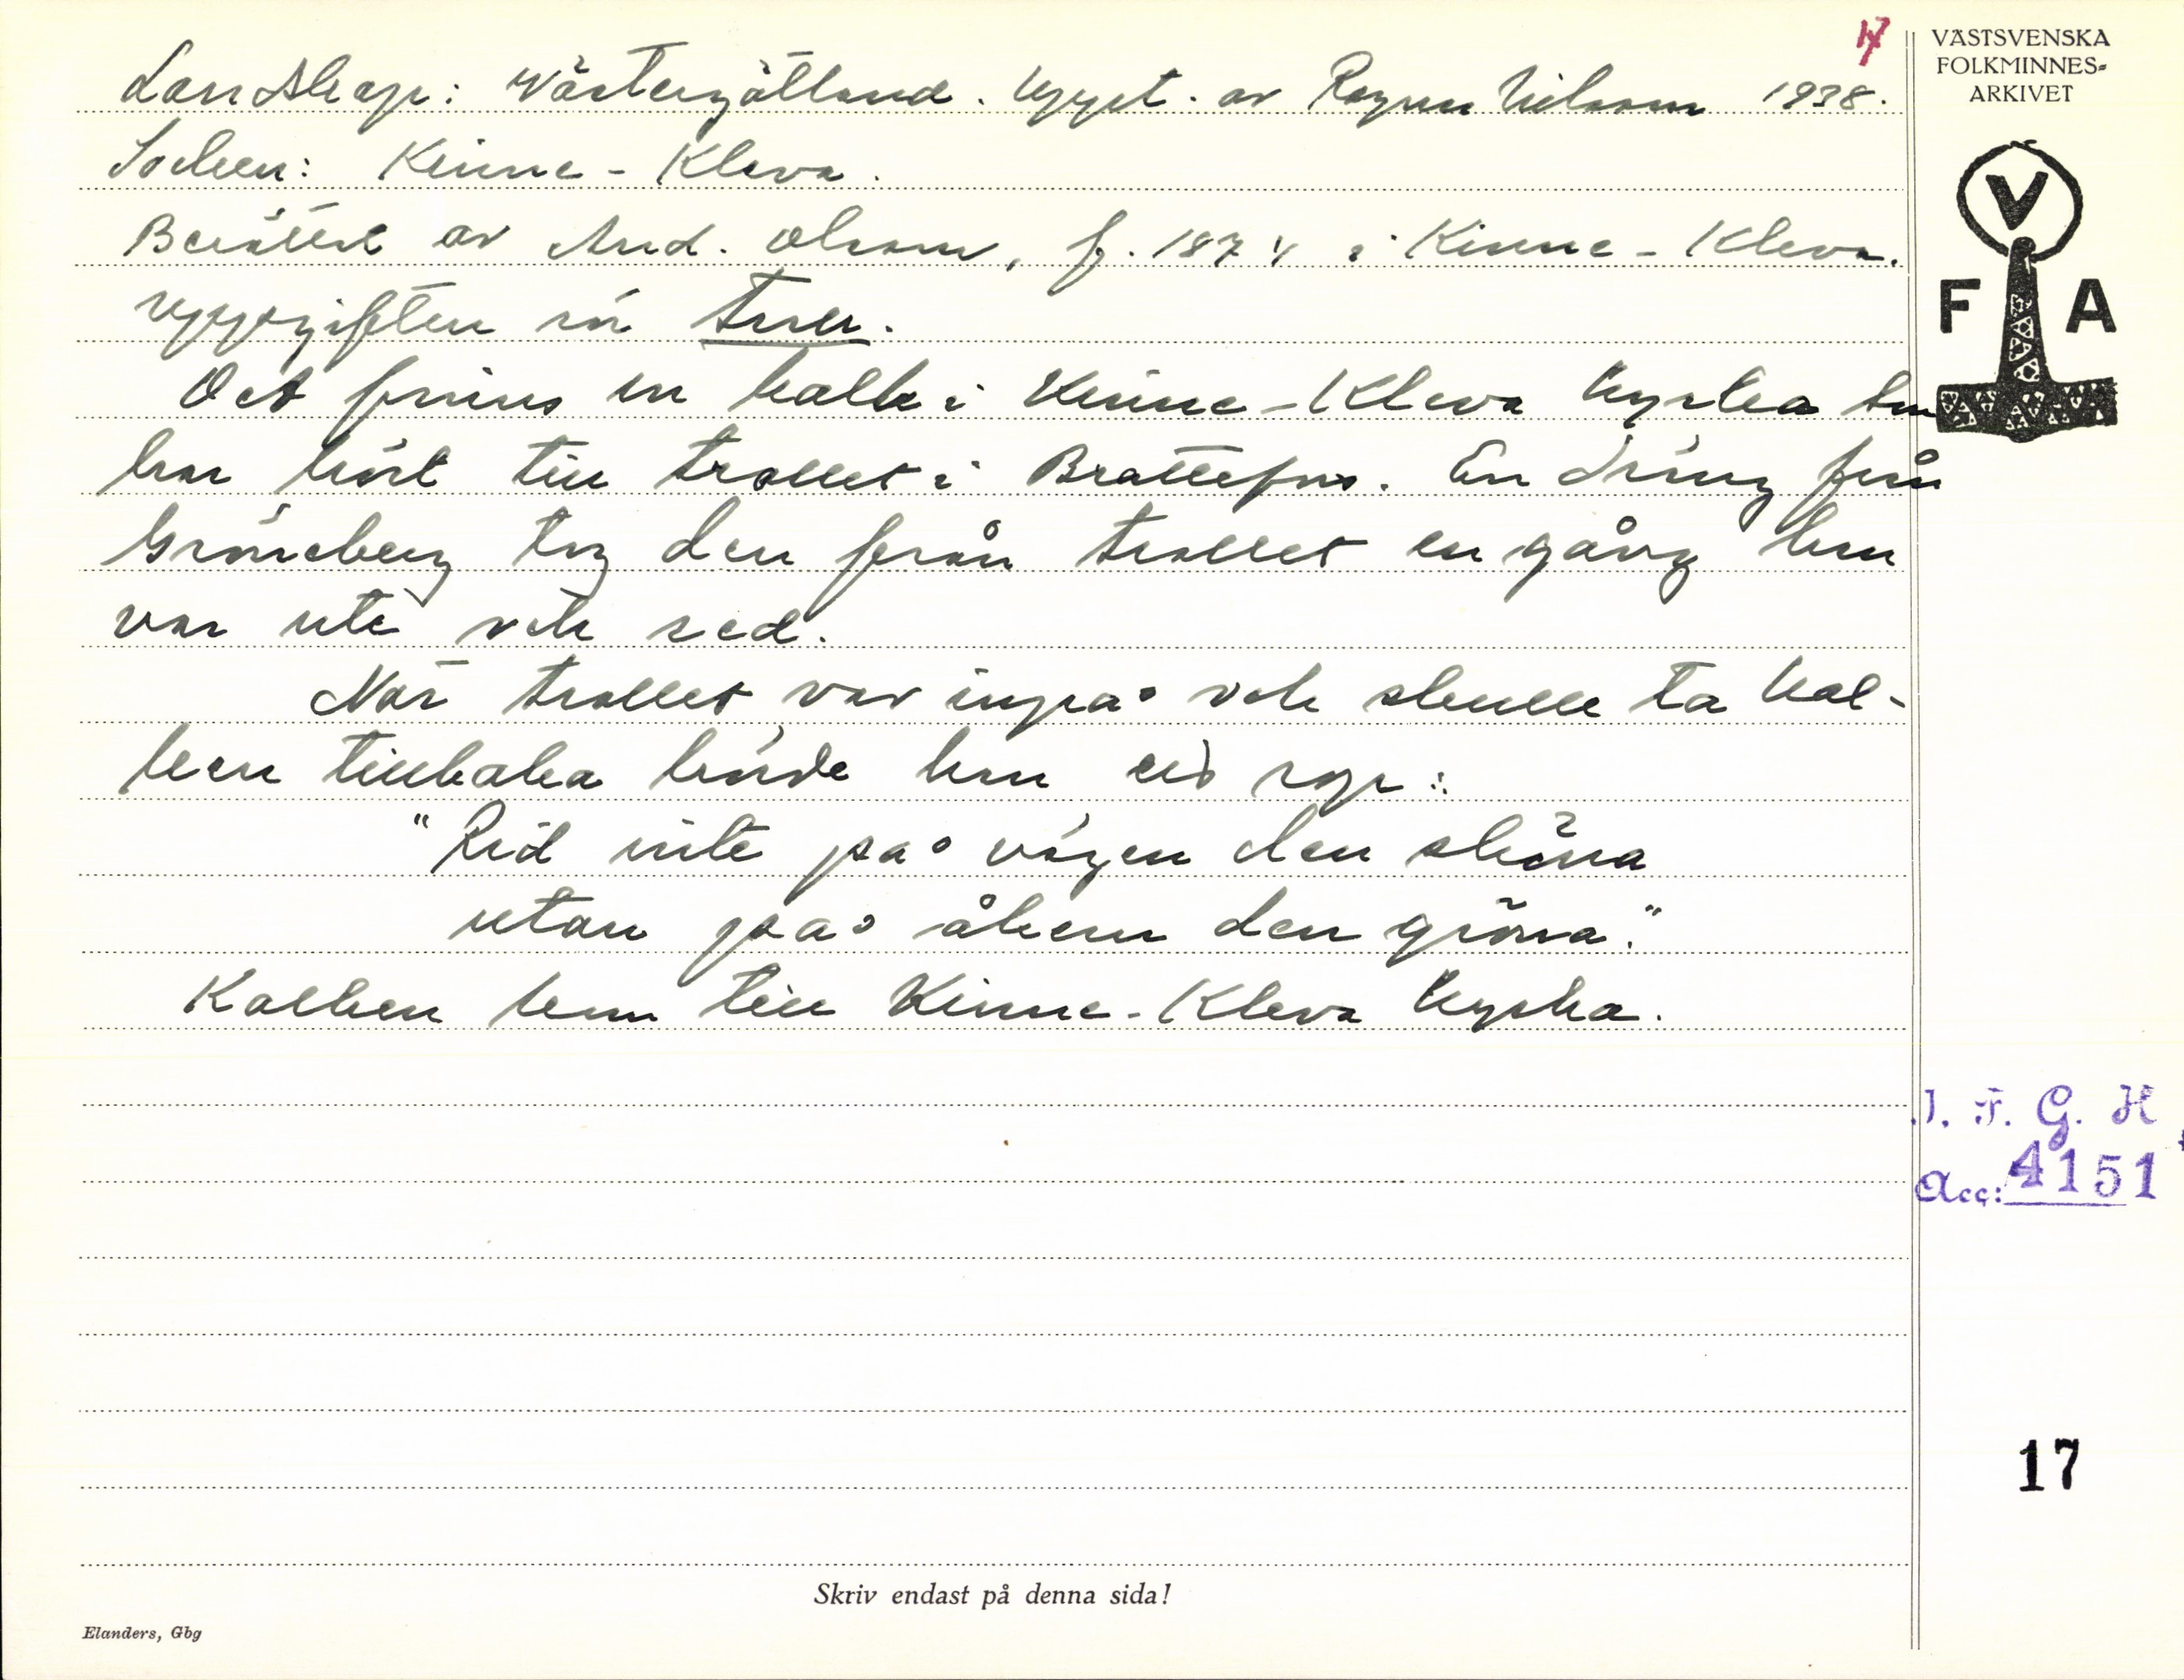 17
VÄSTSVENSKA
FOLKMINNES-
ARKIVET
V
F A
Landskap: Västergötland. Uppt. av Ragnar Nilsson 1938.
Socken: Kinne-Kleva.
Berättat av And. Olsson, f. 1874 i Kinne-Kleva.
Uppgiften rör
Det finns en kalk i Kinne-Kleva kyrka som
har hört till trollet i Brattefors. En dräng från
Gröneberg tog den från trollet en gång han
var ute och red.
När trollet var inpå och skulle ta kal-
ken tillbaka hörde han ett rop:
"Rid inte på vägen den sköna
utan på åkern den gröna."
Kalken kom till Kinne-Kleva kyrka.
I. F. G. H
Acc: 4151
17
Skriv endast på denna sida!
Elanders, Gbg